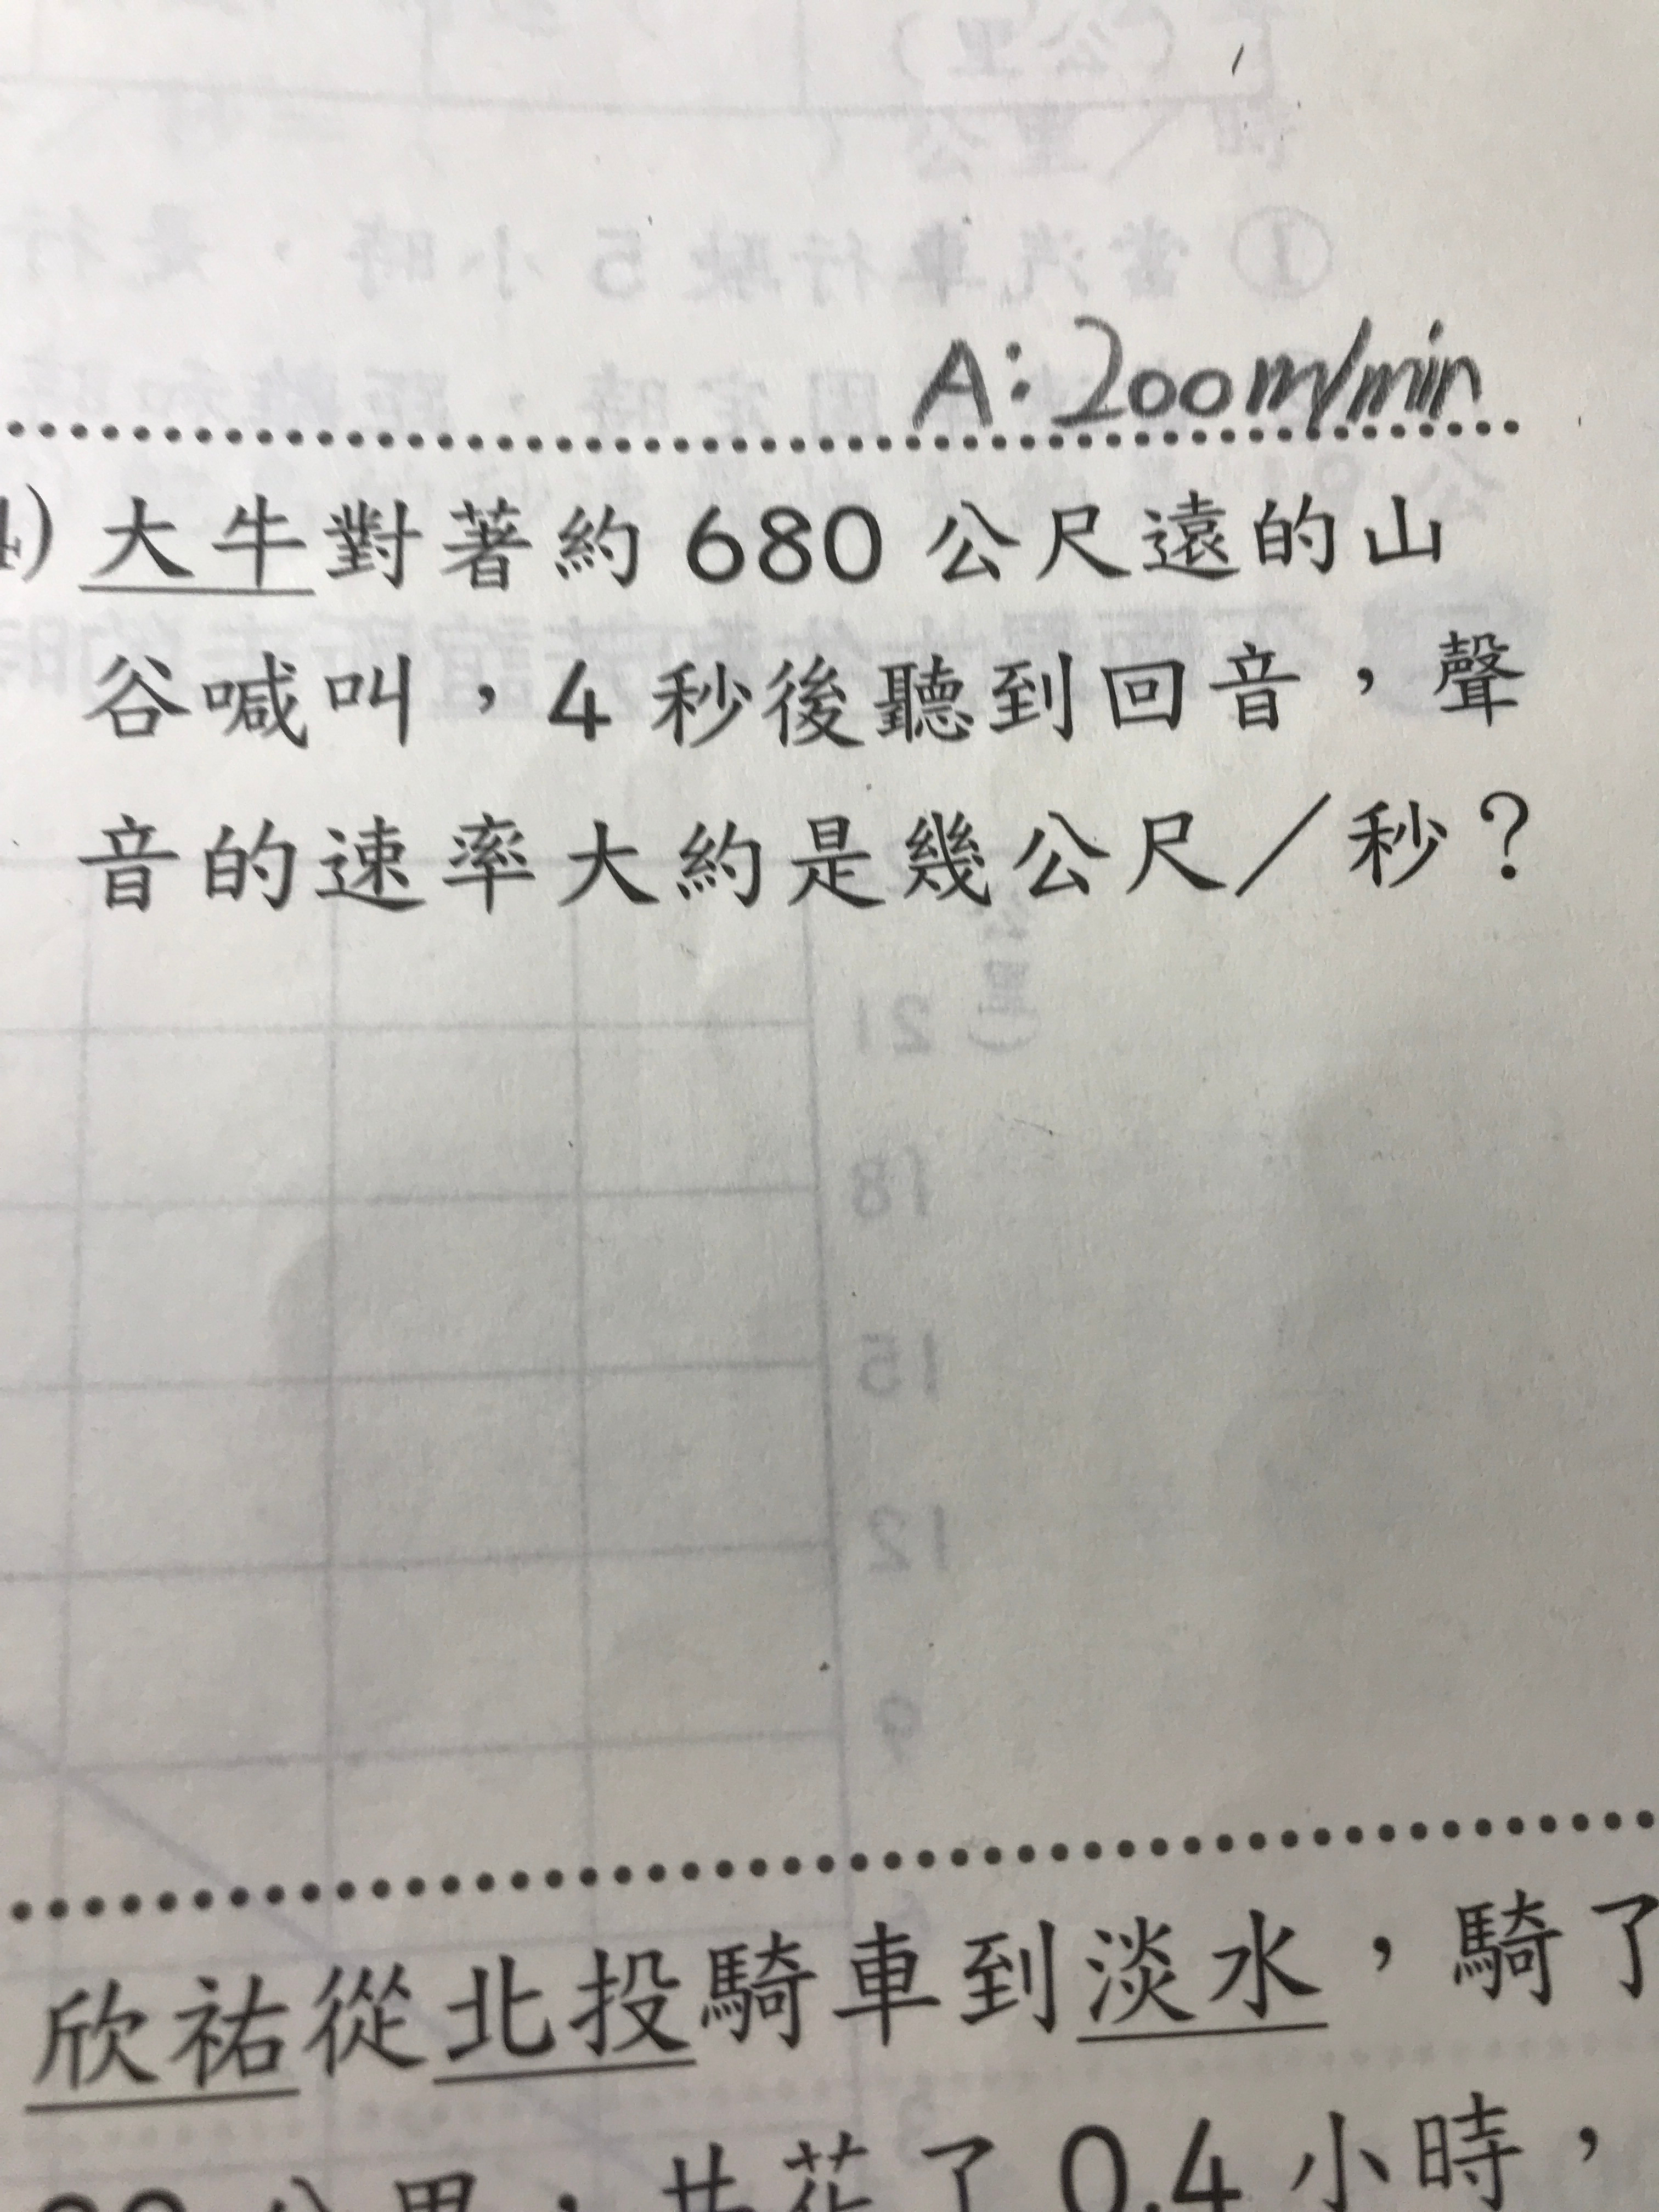 A：200m/min
4) 大牛對著約 680 公尺遠的山
谷喊叫，4 秒後聽到回音，聲
音的速率大約是幾公尺／秒？
欣祐從北投騎車到淡水，騎了
公里，共花了 0.4 小時，